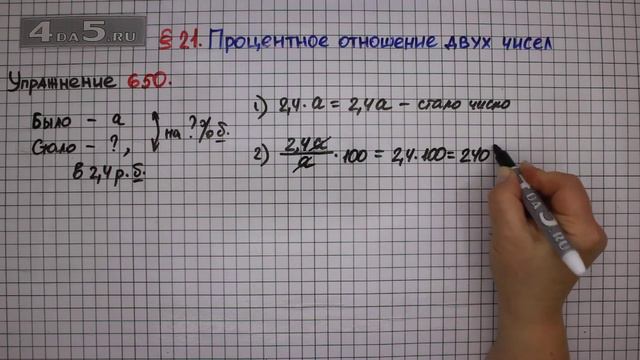 4DA5.RU
§ 21. Процентное отношение двух чисел
Упражнение 650.
Было – а
Стало – ?,
в 2,4 р. б.
на ? % б.
1) 2,4 · а = 2,4а – стало число
2) 2,4а/а · 100 = 2,4 · 100 = 240
4DA5.RU